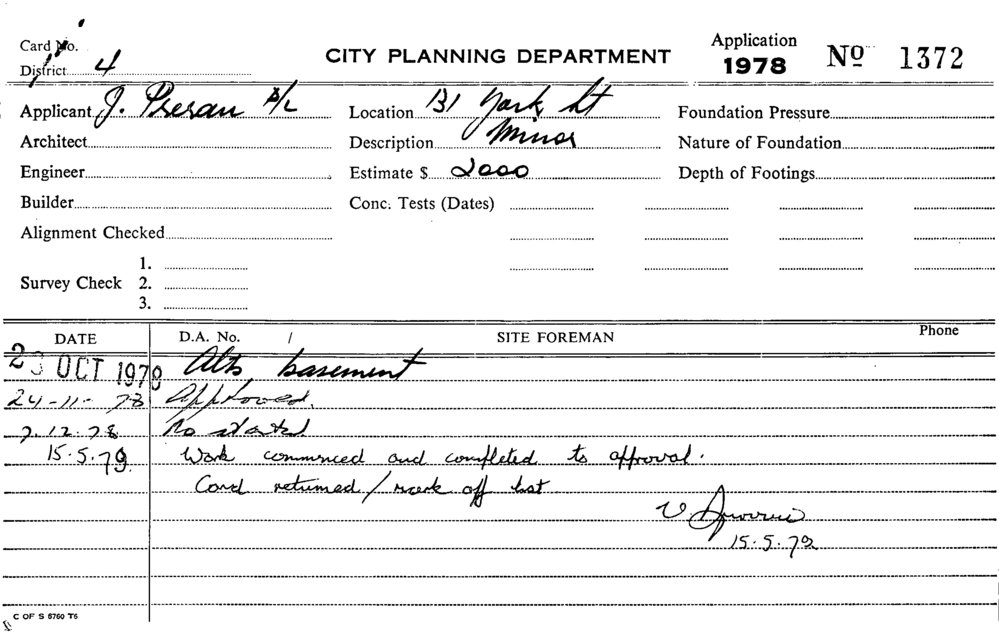 Card No.
District 4
CITY PLANNING DEPARTMENT
Application
1978
No 1372
Applicant J. Presan P/L
Location 131 York St
Foundation Pressure
Architect
Description Minor
Nature of Foundation
Engineer
Estimate $ 2000
Depth of Footings
Builder
Conc. Tests (Dates)
Alignment Checked
Survey Check
1.
2.
3.
DATE
D.A. No. /
SITE FOREMAN
Phone
23 OCT 1978 Alts basement
24-11-78 Approved.
7.12.78 No start
15.5.79 Work commenced and completed to approval.
Card returned / mark off list
15.5.79
C OF S 6760 T6